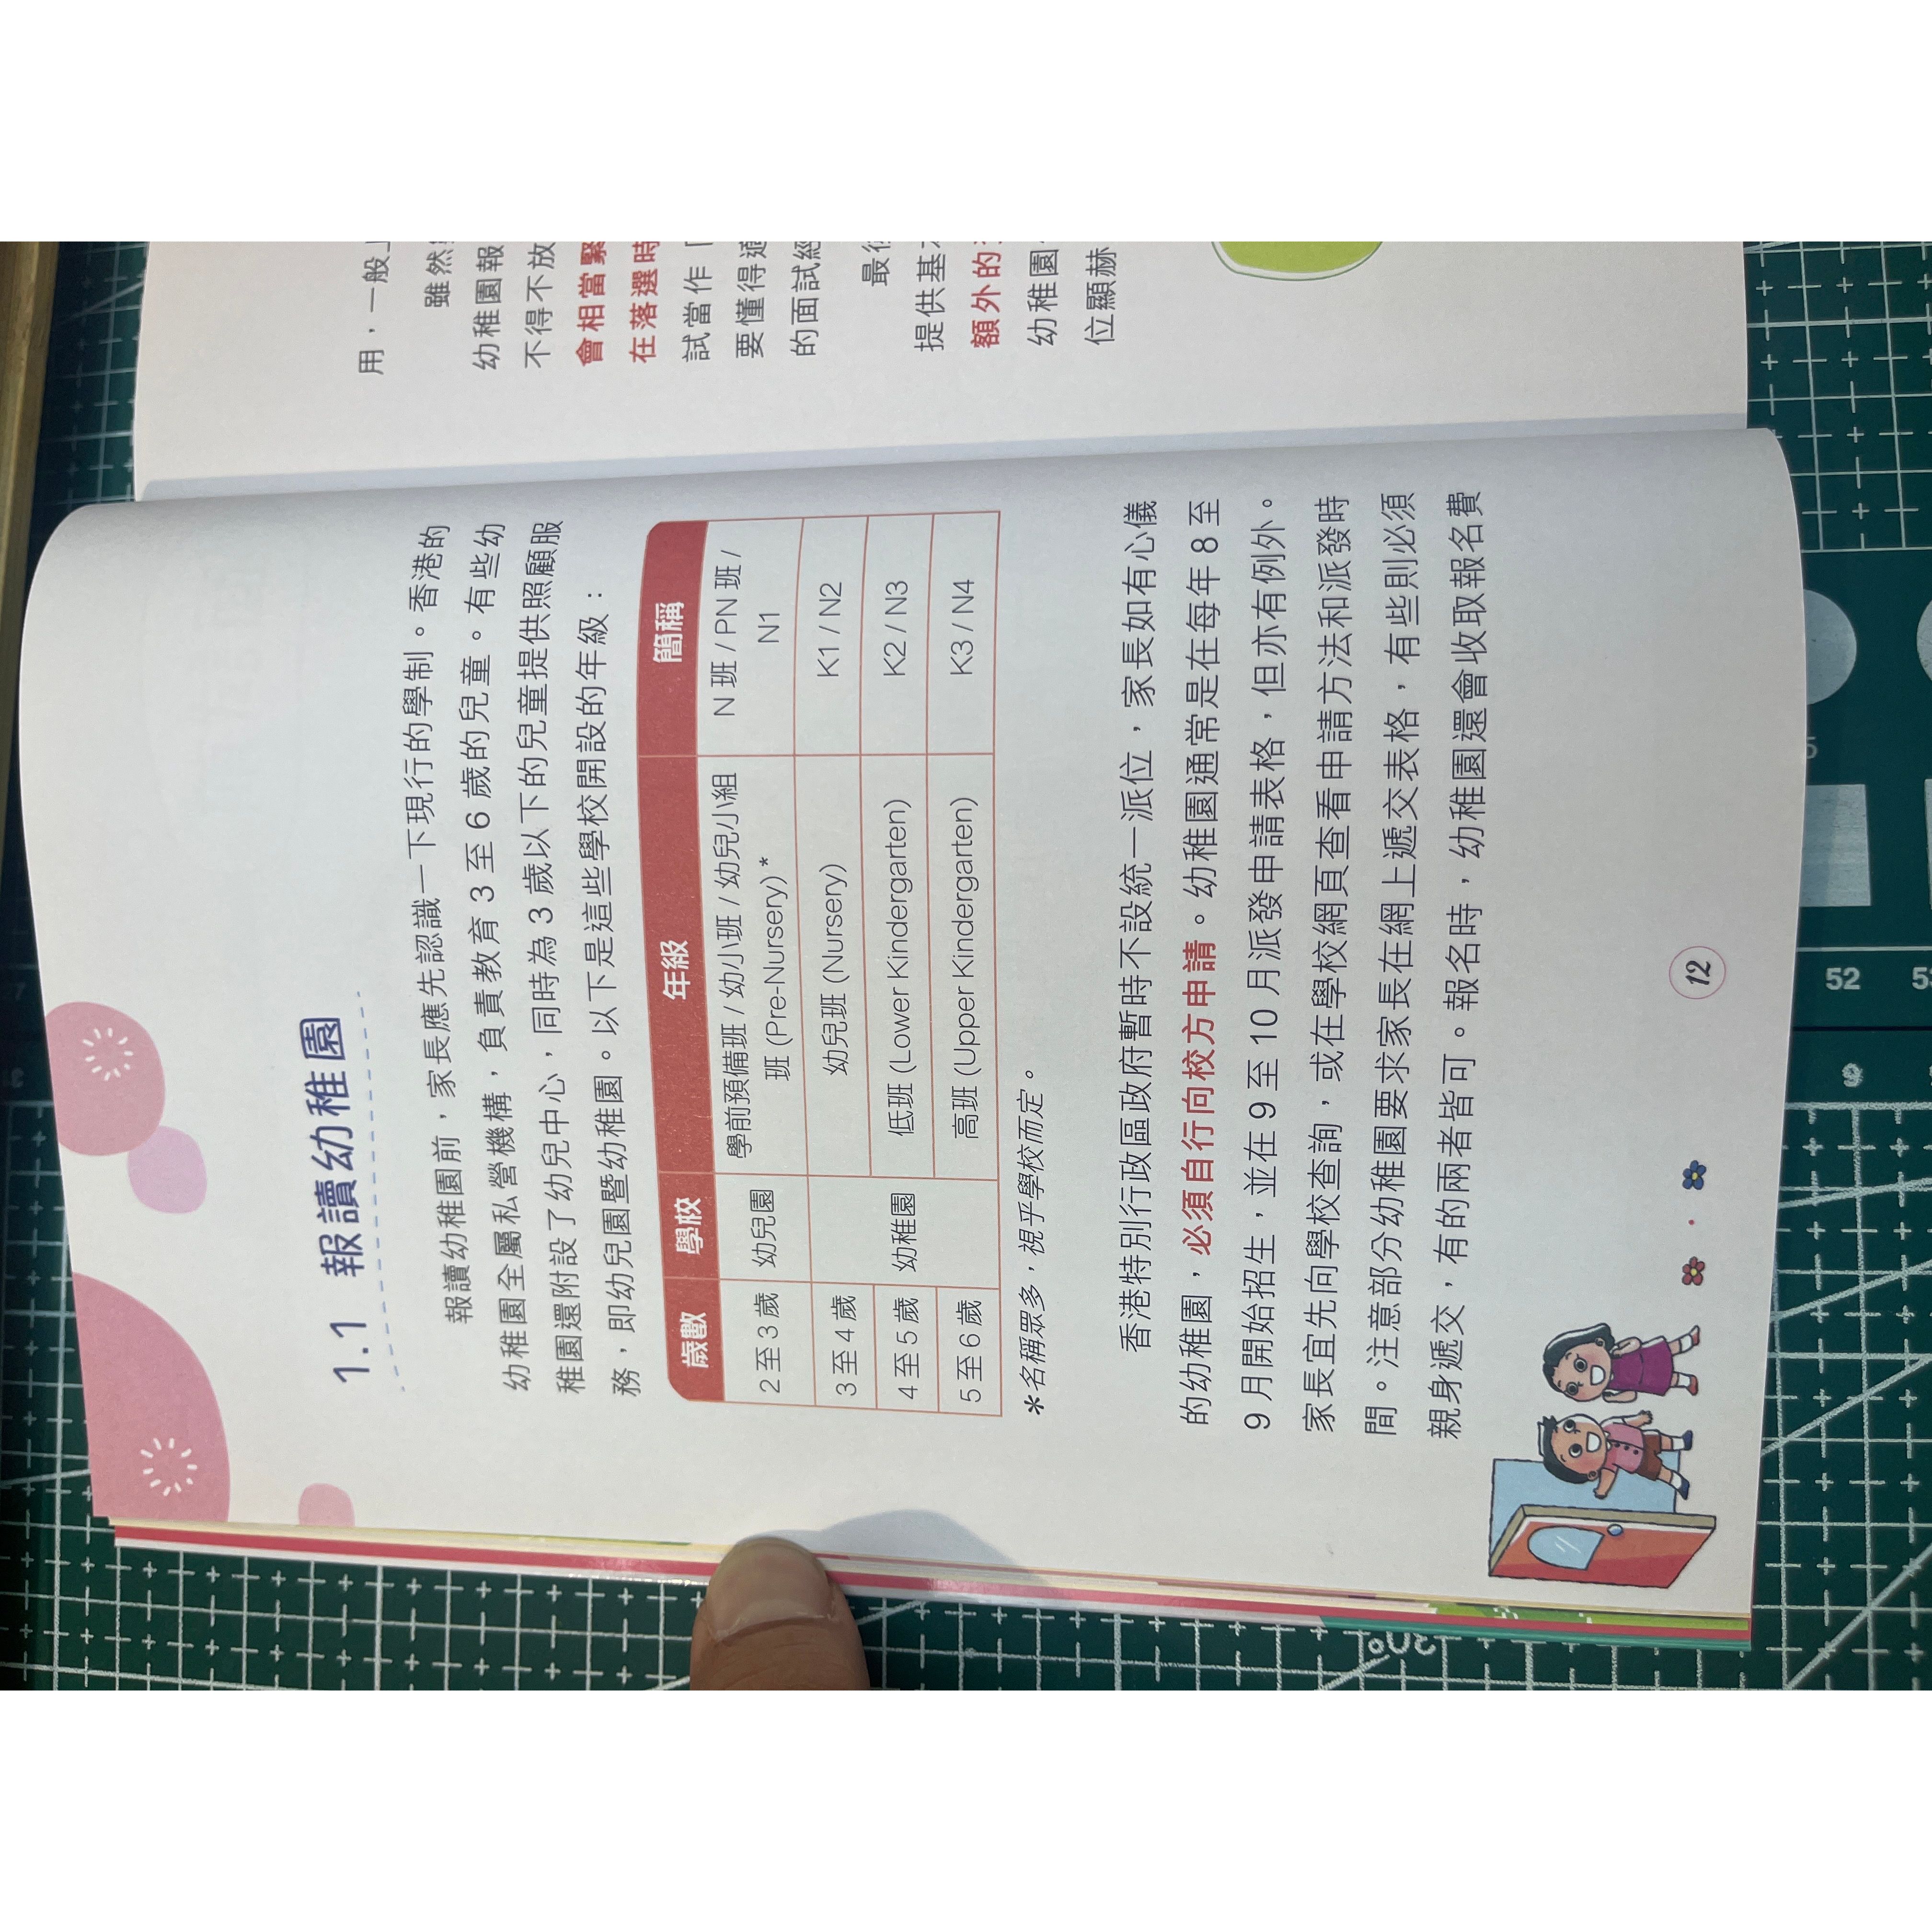 1.1 報讀幼稚園
報讀幼稚園前，家長應先認識一下現行的學制。香港的
幼稚園全屬私營機構，負責教育 3 至 6 歲的兒童。有些幼
稚園還附設了幼兒中心，同時為 3 歲以下的兒童提供照顧服
務，即幼兒園暨幼稚園。以下是這些學校開設的年級：
歲數 學校 年級 簡稱
2 至 3 歲 幼兒園 學前預備班 / 幼小班 / 幼兒小組 N 班 / PN 班 /
班 (Pre-Nursery) * N1
3 至 4 歲 幼兒班 (Nursery) K1 / N2
4 至 5 歲 幼稚園 低班 (Lower Kindergarten) K2 / N3
5 至 6 歲 高班 (Upper Kindergarten) K3 / N4
＊名稱眾多，視乎學校而定。
香港特別行政區政府暫時不設統一派位，家長如有心儀
的幼稚園，必須自行向校方申請。幼稚園通常是在每年 8 至
9 月開始招生，並在 9 至 10 月派發申請表格，但亦有例外。
家長宜先向學校查詢，或在學校網頁查看申請方法和派發時
間。注意部分幼稚園要求家長在網上遞交表格，有些則必須
親身遞交，有的兩者皆可。報名時，幼稚園還會收取報名費
12
用，一般
雖然
幼稚園報
不得不放
會相當緊
在落選時
試當作「
要懂得適
的面試經
最後
提供基
額外的
幼稚園
位顯赫
52